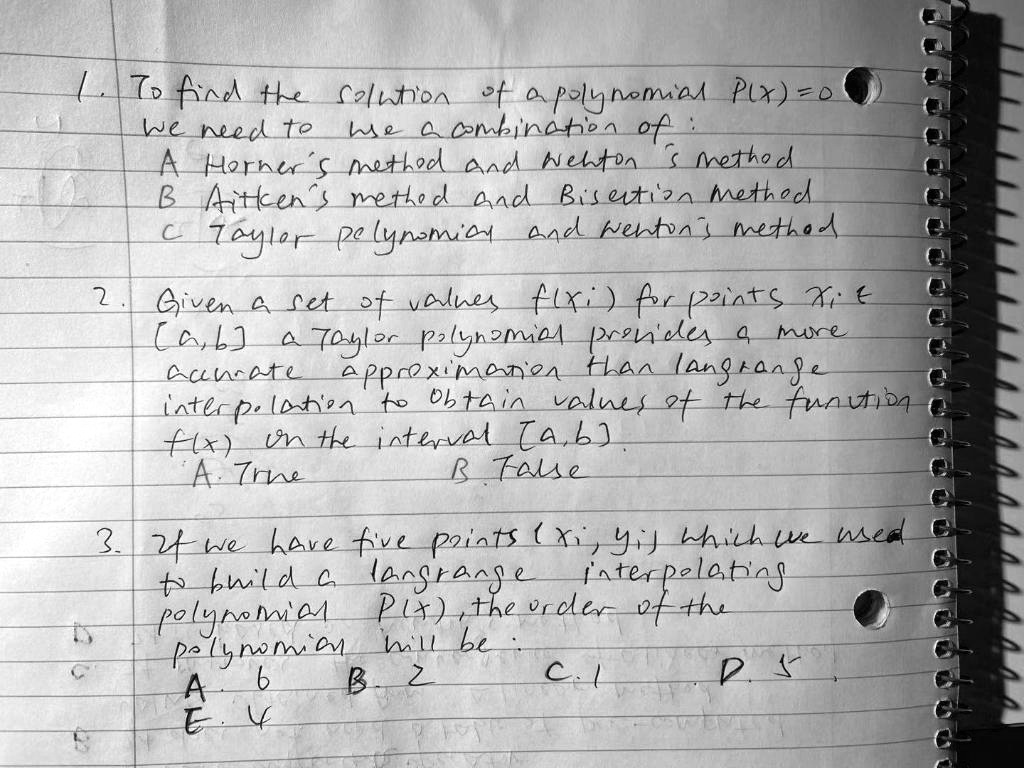 1. To find the solution of a polynomial P(x)=0
we need to use a combination of :
A Horner's method and Newton's method
B Aitken's method and Bisection method
C Taylor polynomial and Newton's method
2. Given a set of values f(xi) for points xi ∈
[a,b] a Taylor polynomial provides a more
accurate approximation than langrange
interpolation to obtain values of the function
f(x) on the interval [a,b].
A. True B. False
3. If we have five points (xi, yi) which we used
to build a langrange interpolating
polynomial P(x), the order of the
polynomial will be :
A. 6 B. 2 C. 1 D. 5
E. 4